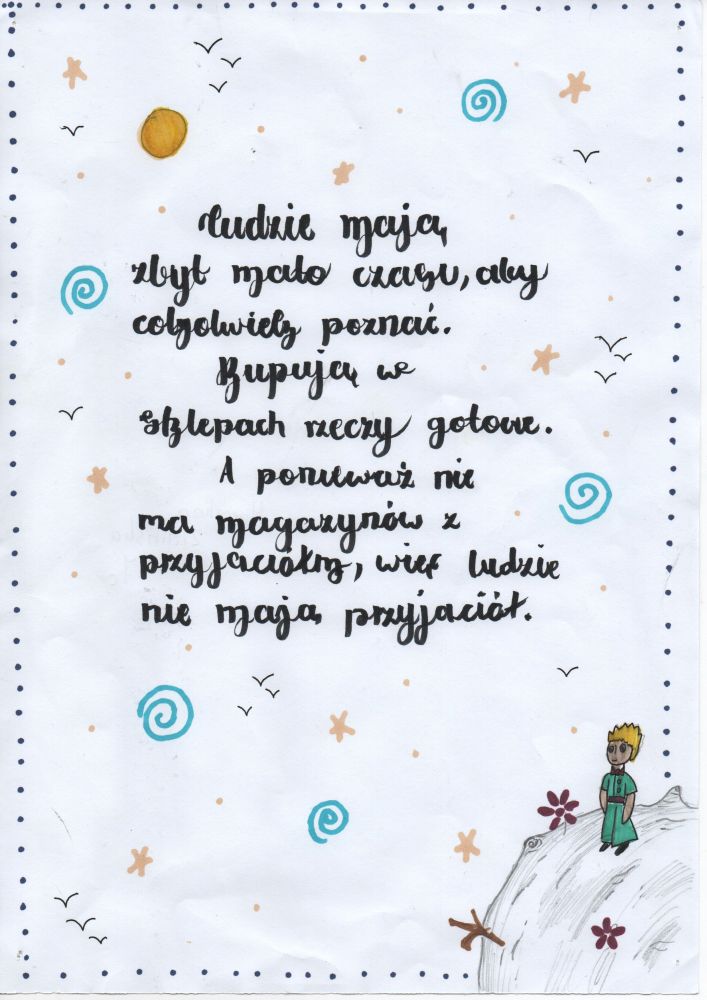 Ludzie mają
zbyt mało czasu, aby
cokolwiek poznać.
Kupują w
sklepach rzeczy gotowe.
A ponieważ nie
ma magazynów z
przyjaciółmi, więc ludzie
nie mają przyjaciół.